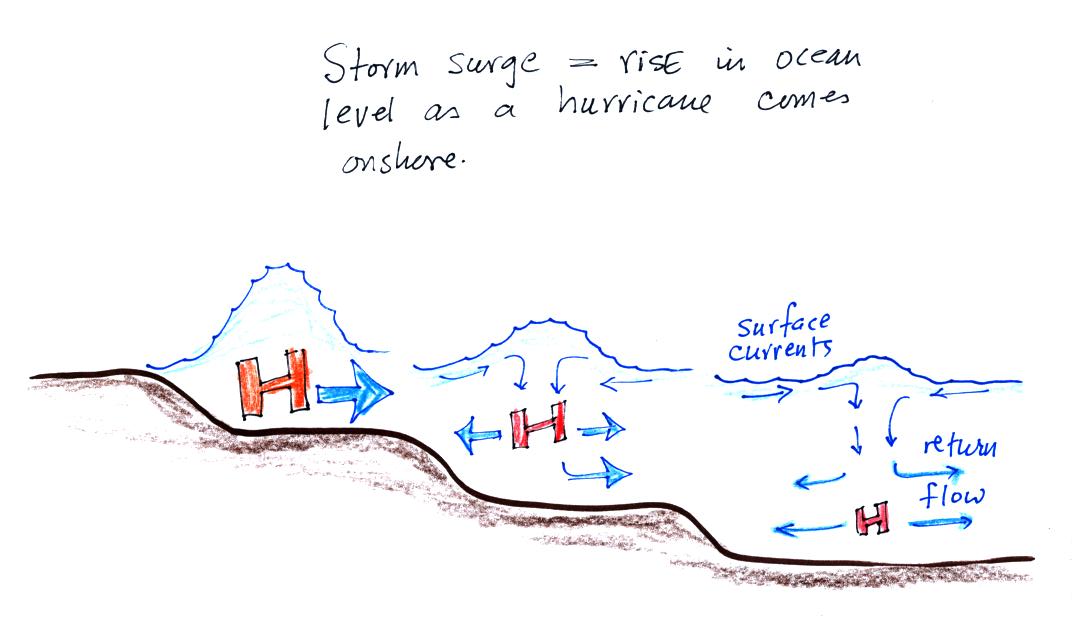 Storm surge = rise in ocean
level as a hurricane comes
onshore.
surface
currents
H
H
return
flow
H